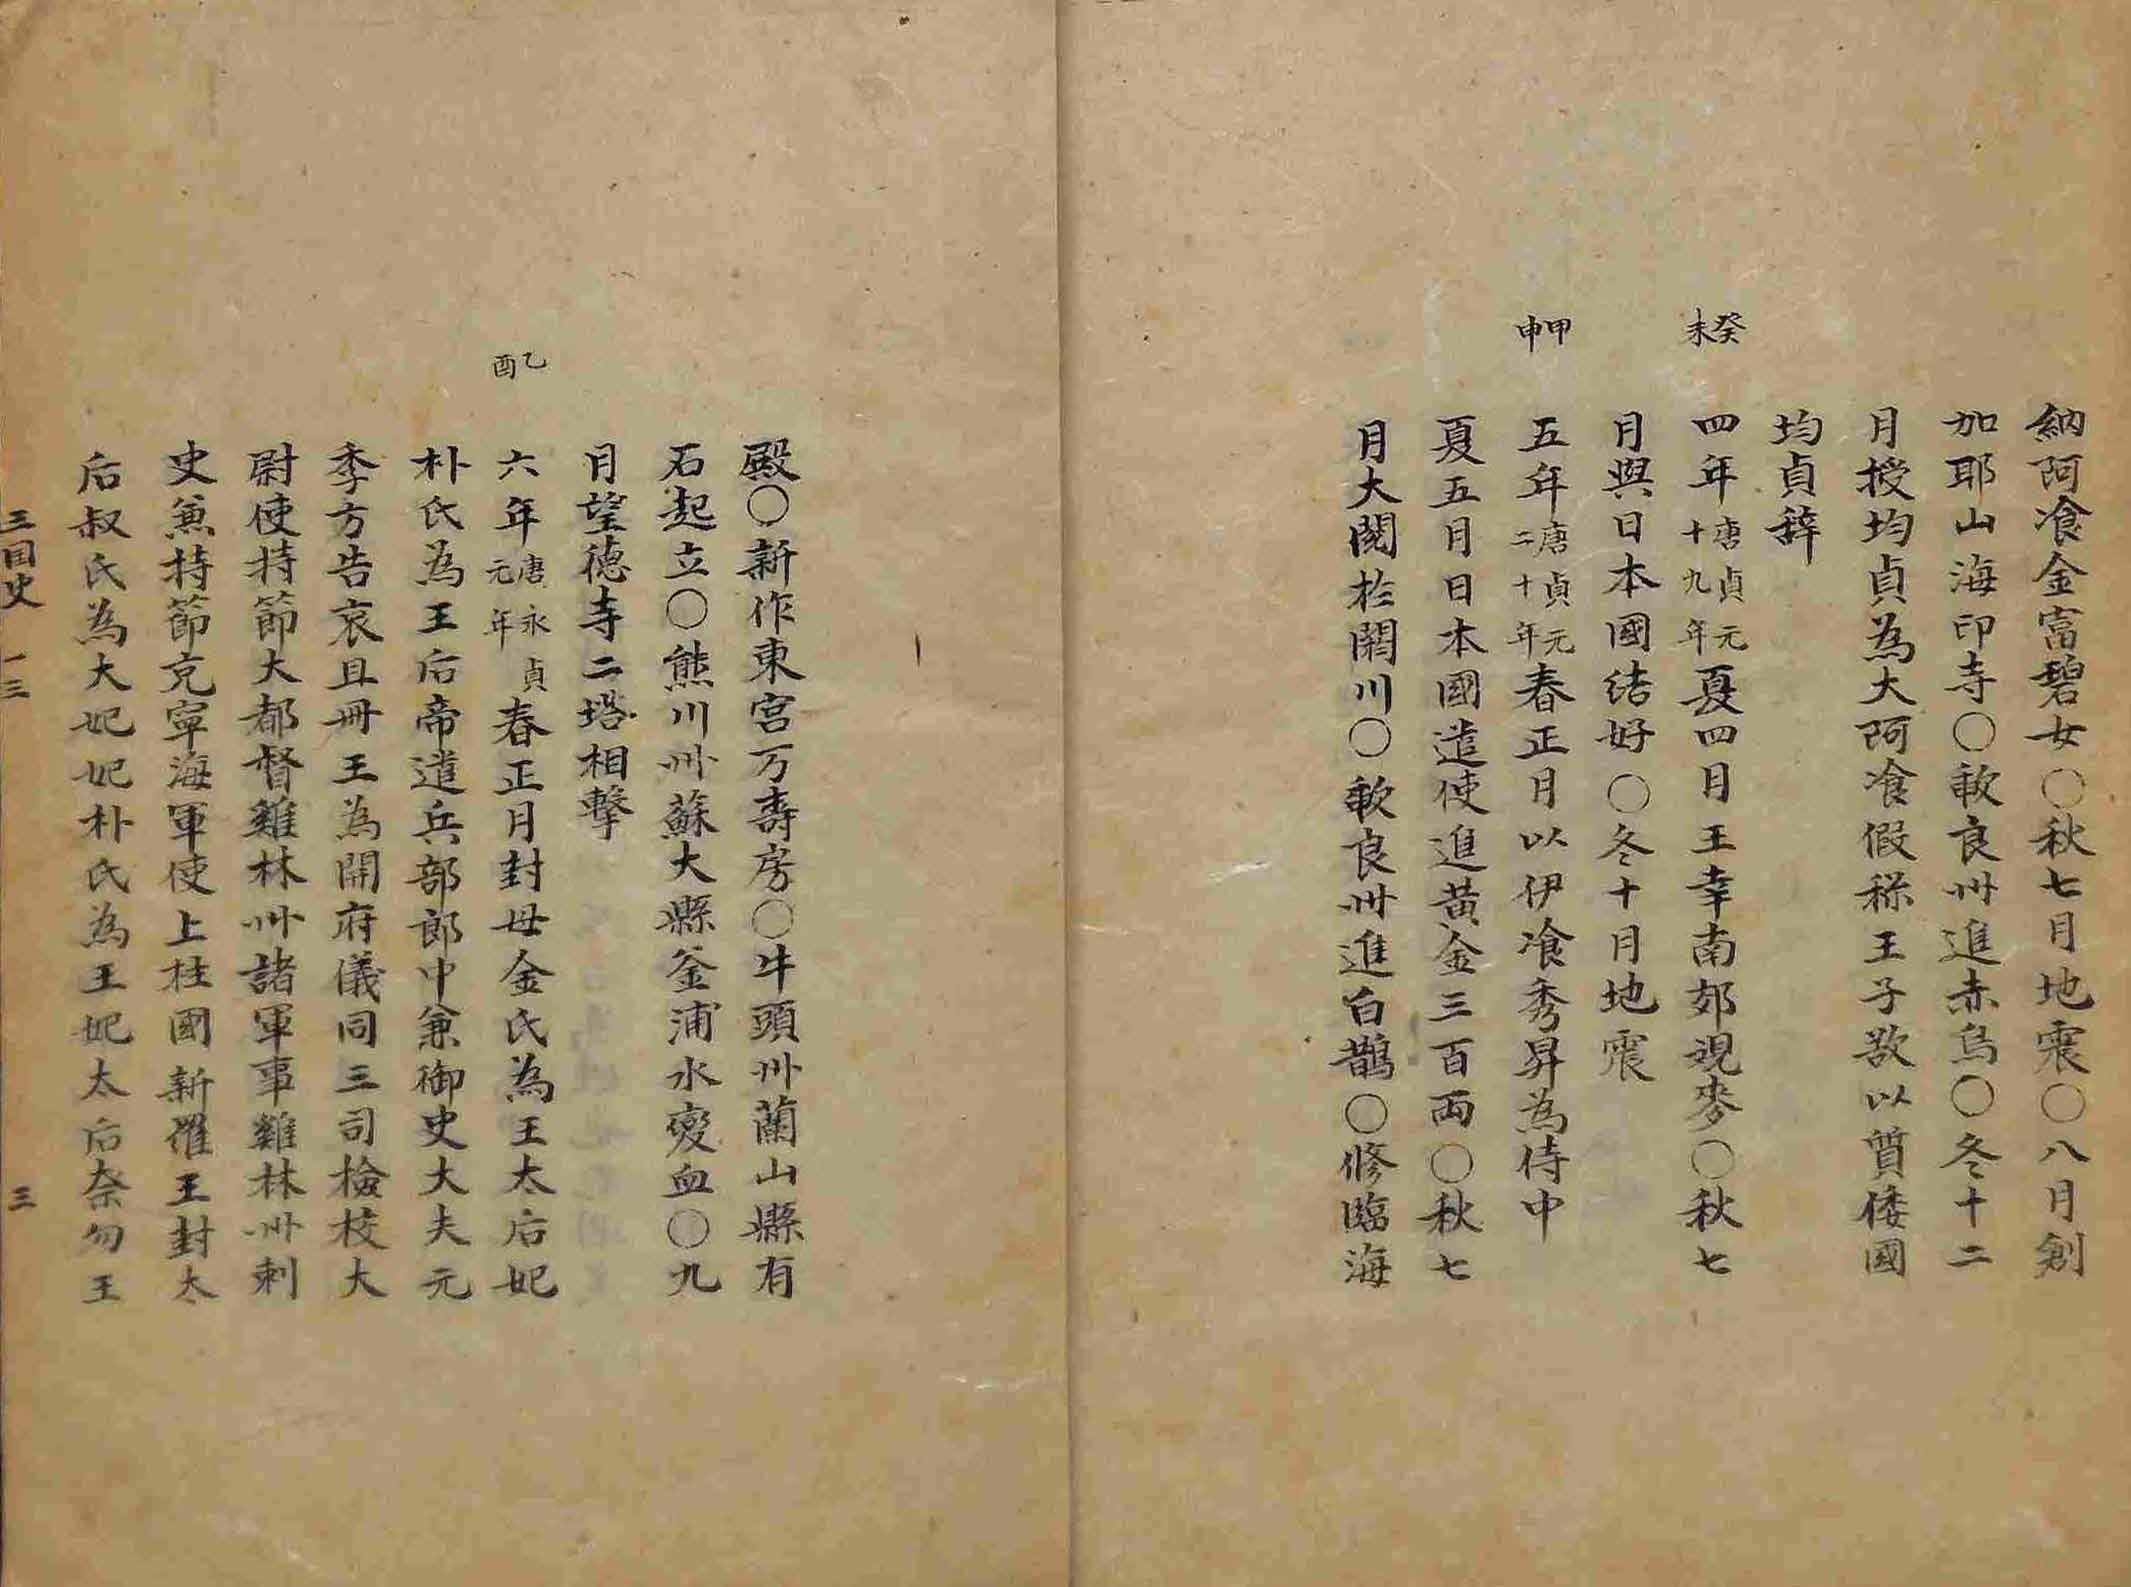 納阿飡金富碧女〇秋七月地震〇八月創
加耶山海印寺〇歃良州進赤烏〇冬十二
月授均貞為大阿飡假稱王子欲以質倭國
均貞辭
癸未
四年唐貞元十九年夏四月王幸南郊觀麥〇秋七
月與日本國結好〇冬十月地震
甲申
五年唐貞元二十年春正月以伊飡秀昇為侍中
夏五月日本國遣使進黃金三百兩〇秋七
月大閱於閼川〇歃良州進白鵲〇修臨海
殿〇新作東宮万壽房〇牛頭州蘭山縣有
石起立〇熊川州蘇大縣釜浦水變血〇九
月望德寺二塔相擊
乙酉
六年唐永貞元年春正月封母金氏為王太后妃
朴氏為王后帝遣兵部郎中兼御史大夫元
季方告哀且冊王為開府儀同三司檢校大
尉使持節大都督雞林州諸軍事雞林州刺
史兼持節充寧海軍使上柱國新羅王封太
后叔氏為大妃妃朴氏為王妃太后奈勿王
三国史 一三 三